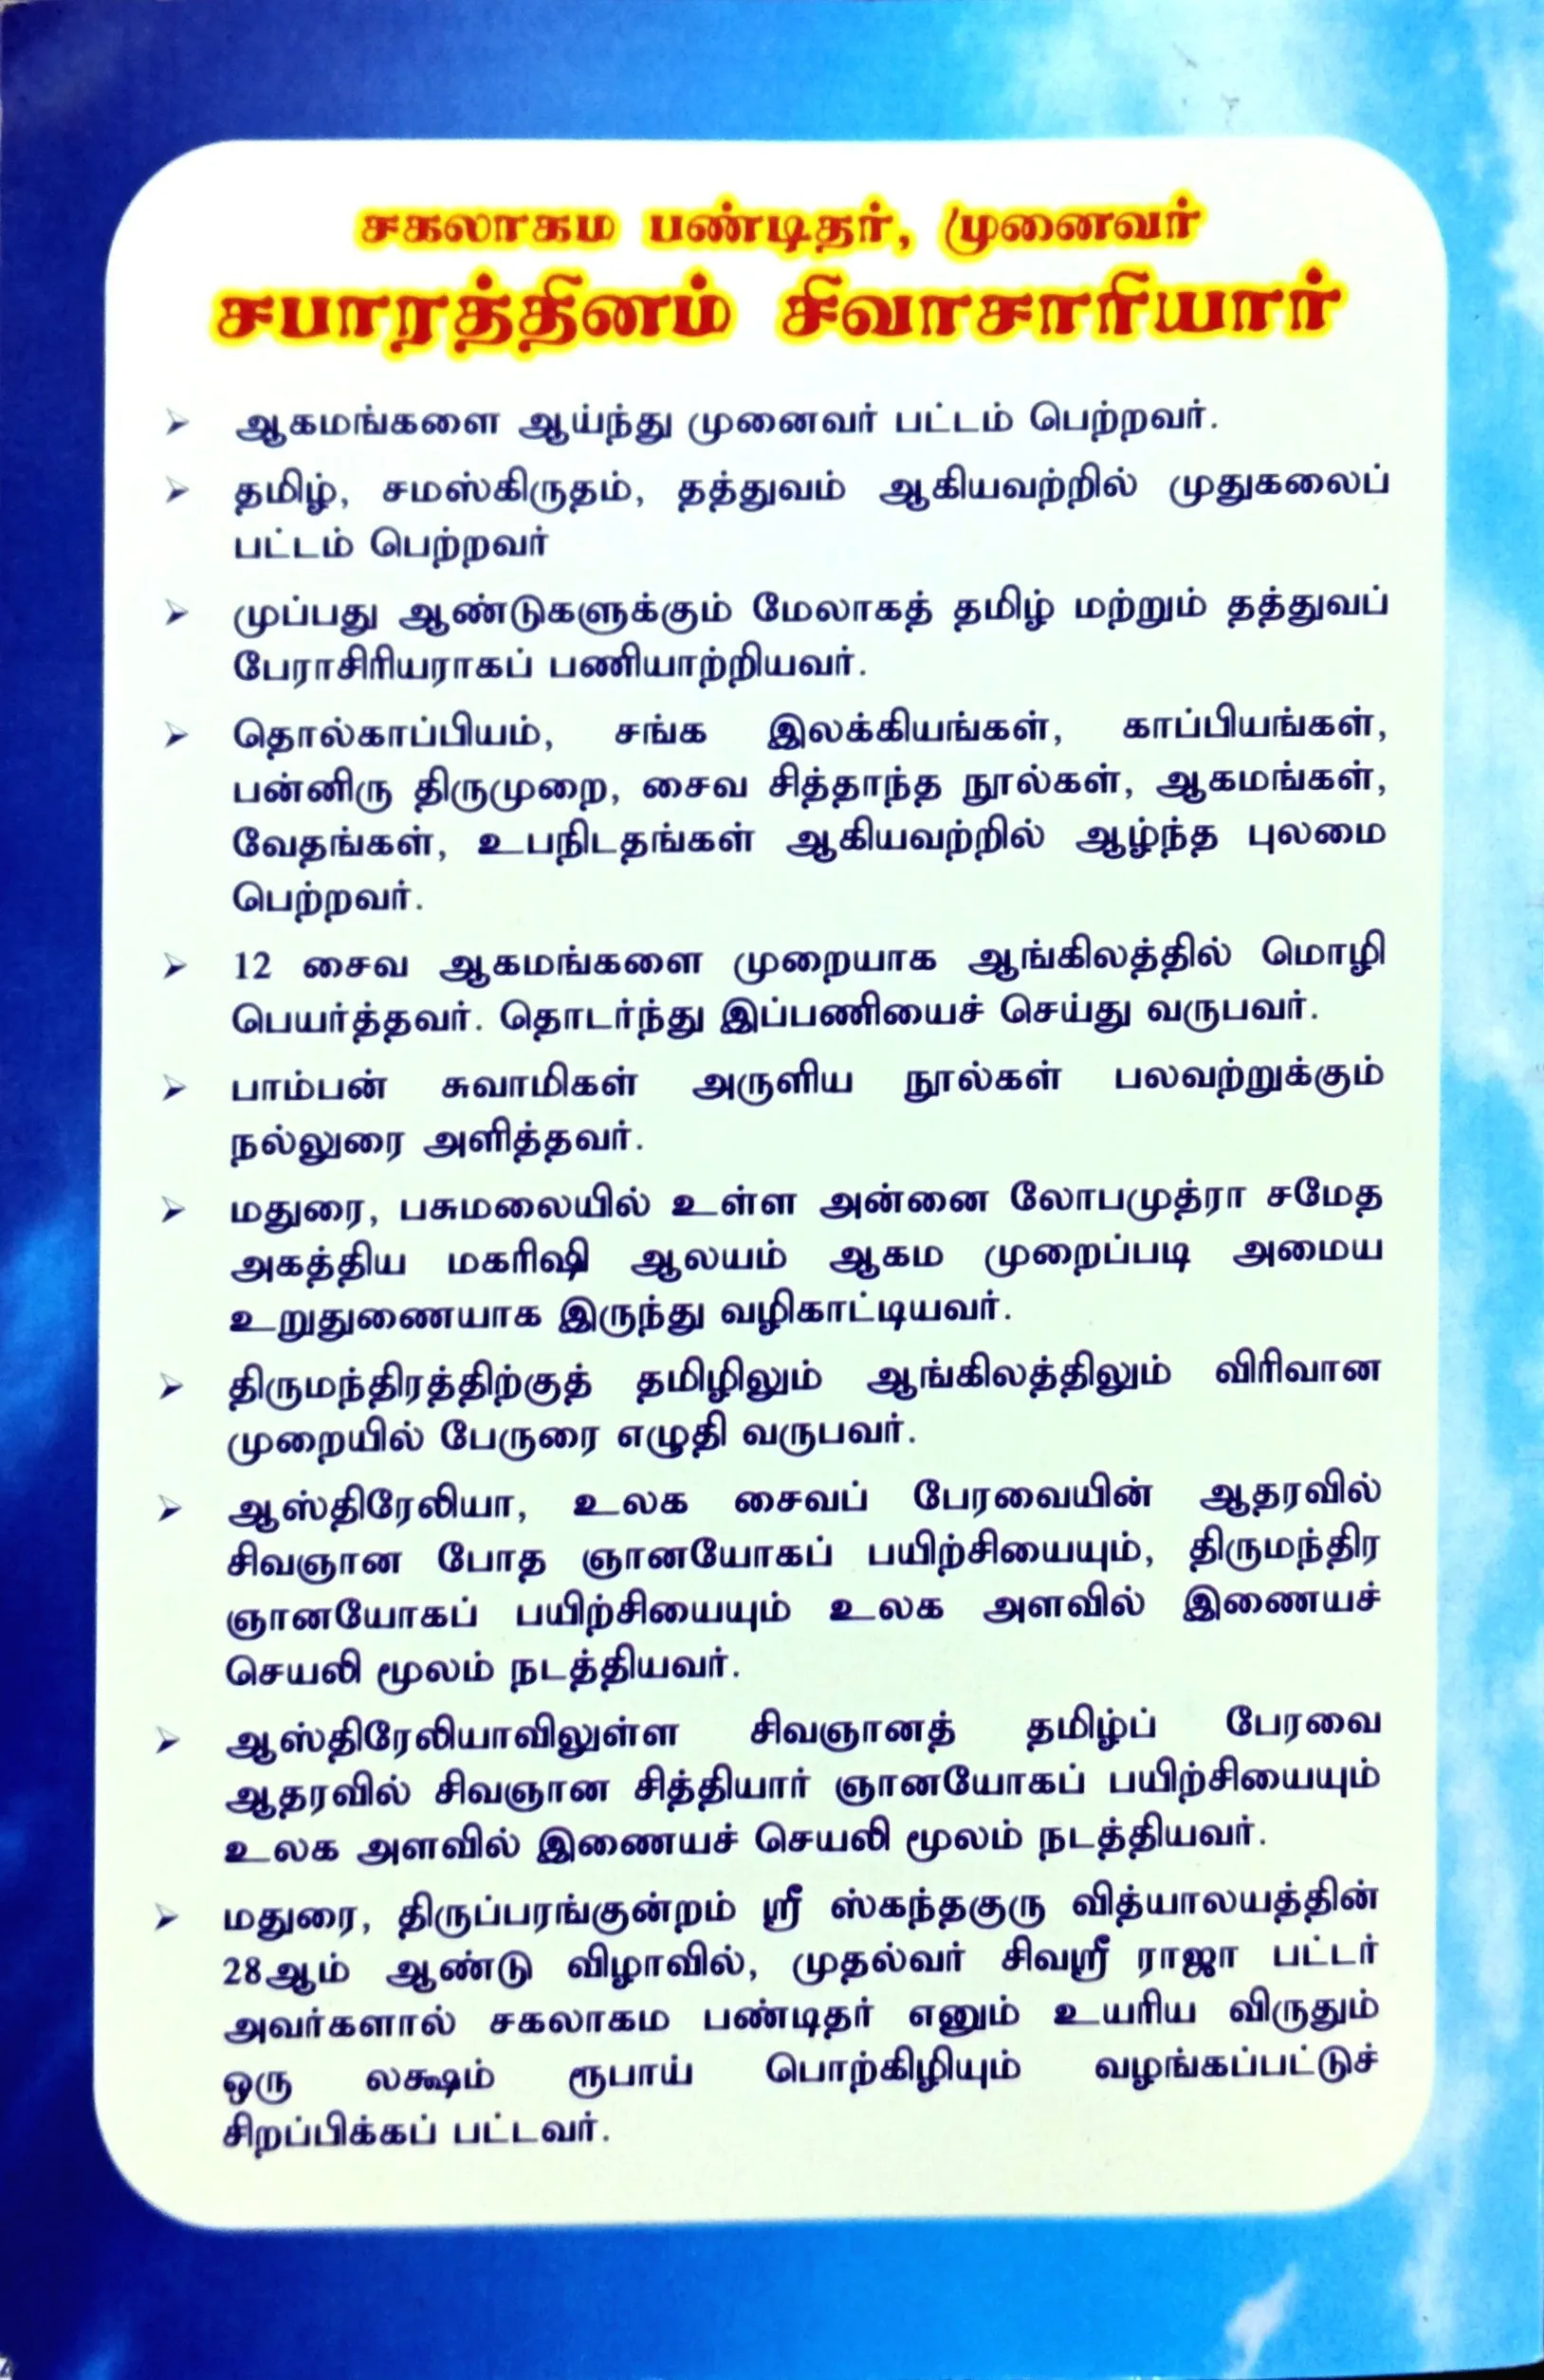 சகலாகம பண்டிதர், முனைவர்
சபாரத்தினம் சிவாசாரியார்
➢ ஆகமங்களை ஆய்ந்து முனைவர் பட்டம் பெற்றவர்.
➢ தமிழ், சமஸ்கிருதம், தத்துவம் ஆகியவற்றில் முதுகலைப்
பட்டம் பெற்றவர்
➢ முப்பது ஆண்டுகளுக்கும் மேலாகத் தமிழ் மற்றும் தத்துவப்
பேராசிரியராகப் பணியாற்றியவர்.
➢ தொல்காப்பியம், சங்க இலக்கியங்கள், காப்பியங்கள்,
பன்னிரு திருமுறை, சைவ சித்தாந்த நூல்கள், ஆகமங்கள்,
வேதங்கள், உபநிடதங்கள் ஆகியவற்றில் ஆழ்ந்த புலமை
பெற்றவர்.
➢ 12 சைவ ஆகமங்களை முறையாக ஆங்கிலத்தில் மொழி
பெயர்த்தவர். தொடர்ந்து இப்பணியைச் செய்து வருபவர்.
➢ பாம்பன் சுவாமிகள் அருளிய நூல்கள் பலவற்றுக்கும்
நல்லுரை அளித்தவர்.
➢ மதுரை, பசுமலையில் உள்ள அன்னை லோபமுத்ரா சமேத
அகத்திய மகரிஷி ஆலயம் ஆகம முறைப்படி அமைய
உறுதுணையாக இருந்து வழிகாட்டியவர்.
➢ திருமந்திரத்திற்குத் தமிழிலும் ஆங்கிலத்திலும் விரிவான
முறையில் பேருரை எழுதி வருபவர்.
➢ ஆஸ்திரேலியா, உலக சைவப் பேரவையின் ஆதரவில்
சிவஞான போத ஞானயோகப் பயிற்சியையும், திருமந்திர
ஞானயோகப் பயிற்சியையும் உலக அளவில் இணையச்
செயலி மூலம் நடத்தியவர்.
➢ ஆஸ்திரேலியாவிலுள்ள சிவஞானத் தமிழ்ப் பேரவை
ஆதரவில் சிவஞான சித்தியார் ஞானயோகப் பயிற்சியையும்
உலக அளவில் இணையச் செயலி மூலம் நடத்தியவர்.
➢ மதுரை, திருப்பரங்குன்றம் ஸ்ரீ ஸ்கந்தகுரு வித்யாலயத்தின்
28ஆம் ஆண்டு விழாவில், முதல்வர் சிவஸ்ரீ ராஜா பட்டர்
அவர்களால் சகலாகம பண்டிதர் எனும் உயரிய விருதும்
ஒரு லக்ஷம் ரூபாய் பொற்கிழியும் வழங்கப்பட்டுச்
சிறப்பிக்கப் பட்டவர்.